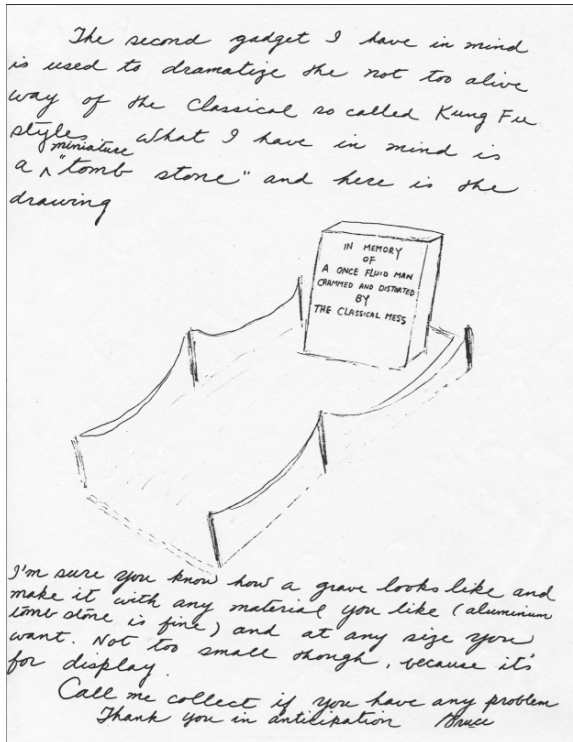 The second gadget I have in mind
is used to dramatize the not too alive
way of the Classical so called Kung Fu
styles. What I have in mind is
a ^ miniature "tomb stone" and here is the
drawing
IN MEMORY
OF
A ONCE FLUID MAN
CRAMMED AND DISTORTED
BY
THE CLASSICAL MESS
I'm sure you know how a grave looks like and
make it with any material you like (aluminum
tomb stone is fine) and at any size you
want. Not too small though, because it's
for display.
Call me collect if you have any problem
Thank you in anticipation Bruce